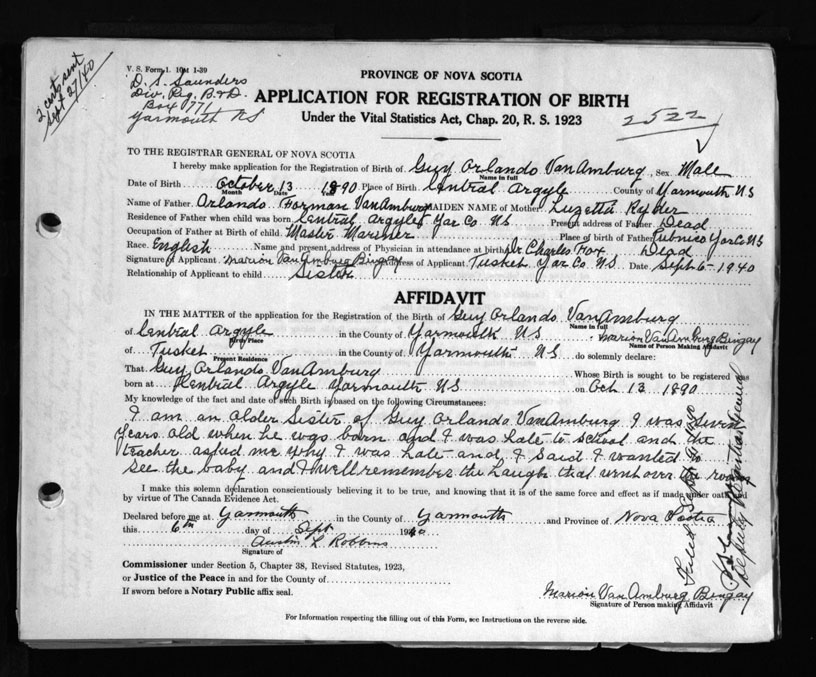 2 certs sent
Sept 27/40
V. S. Form 1. 10M 1-39
D. S. Saunders
Div. Reg. B & D.
Box 771
Yarmouth NS
PROVINCE OF NOVA SCOTIA
APPLICATION FOR REGISTRATION OF BIRTH
Under the Vital Statistics Act, Chap. 20, R. S. 1923
2522
TO THE REGISTRAR GENERAL OF NOVA SCOTIA
I hereby make application for the Registration of Birth of Guy Orlando VanAmburg, Sex Male
Name in full
Date of Birth October 13 1890 Place of Birth Central Argyle County of Yarmouth NS
Month Date Year
Name of Father Orlando Forman VanAmburg MAIDEN NAME of Mother Luzetta Ryder
Residence of Father when child was born Central Argyle Yar Co. NS Present address of Father Dead
Occupation of Father at Birth of child Master Mariner Place of birth of Father Pubnico Yar Co NS
Race English Name and present address of Physician in attendance at birth Dr Charles Fox Dead
Signature of Applicant Marion VanAmburg Bingay Address of Applicant Tusket Yar Co. NS Date Sept 6- 1940
Relationship of Applicant to child Sister
AFFIDAVIT
IN THE MATTER of the application for the Registration of the Birth of Guy Orlando VanAmburg
Name in full
of Central Argyle in the County of Yarmouth NS Marion VanAmburg Bingay
Birth Place Name of Person Making Affidavit
of Tusket in the County of Yarmouth NS do solemnly declare:
Present Residence
That Guy Orlando VanAmburg Whose Birth is sought to be registered was
born at Central Argyle Yarmouth NS on Oct 13 1890
My knowledge of the fact and date of such Birth is based on the following Circumstances:
I am an older Sister of Guy Orlando VanAmburg I was seven
years old when he was born and I was late to school and the
teacher asked me why I was late and I said I wanted to
see the baby and I well remember the laugh that went over the room
I make this solemn declaration conscientiously believing it to be true, and knowing that it is of the same force and effect as if made under oath and
by virtue of The Canada Evidence Act.
Declared before me at Yarmouth in the County of Yarmouth and Province of Nova Scotia
this 6th day of Sept 1940
Austin L Robbins
Signature of
Commissioner under Section 5, Chapter 38, Revised Statutes, 1923,
or Justice of the Peace in and for the County of
If sworn before a Notary Public affix seal.
Marion Van Amburg Bingay
Signature of Person making Affidavit
For Information respecting the filling out of this Form, see Instructions on the reverse side.
Filed
Deputy Registrar General